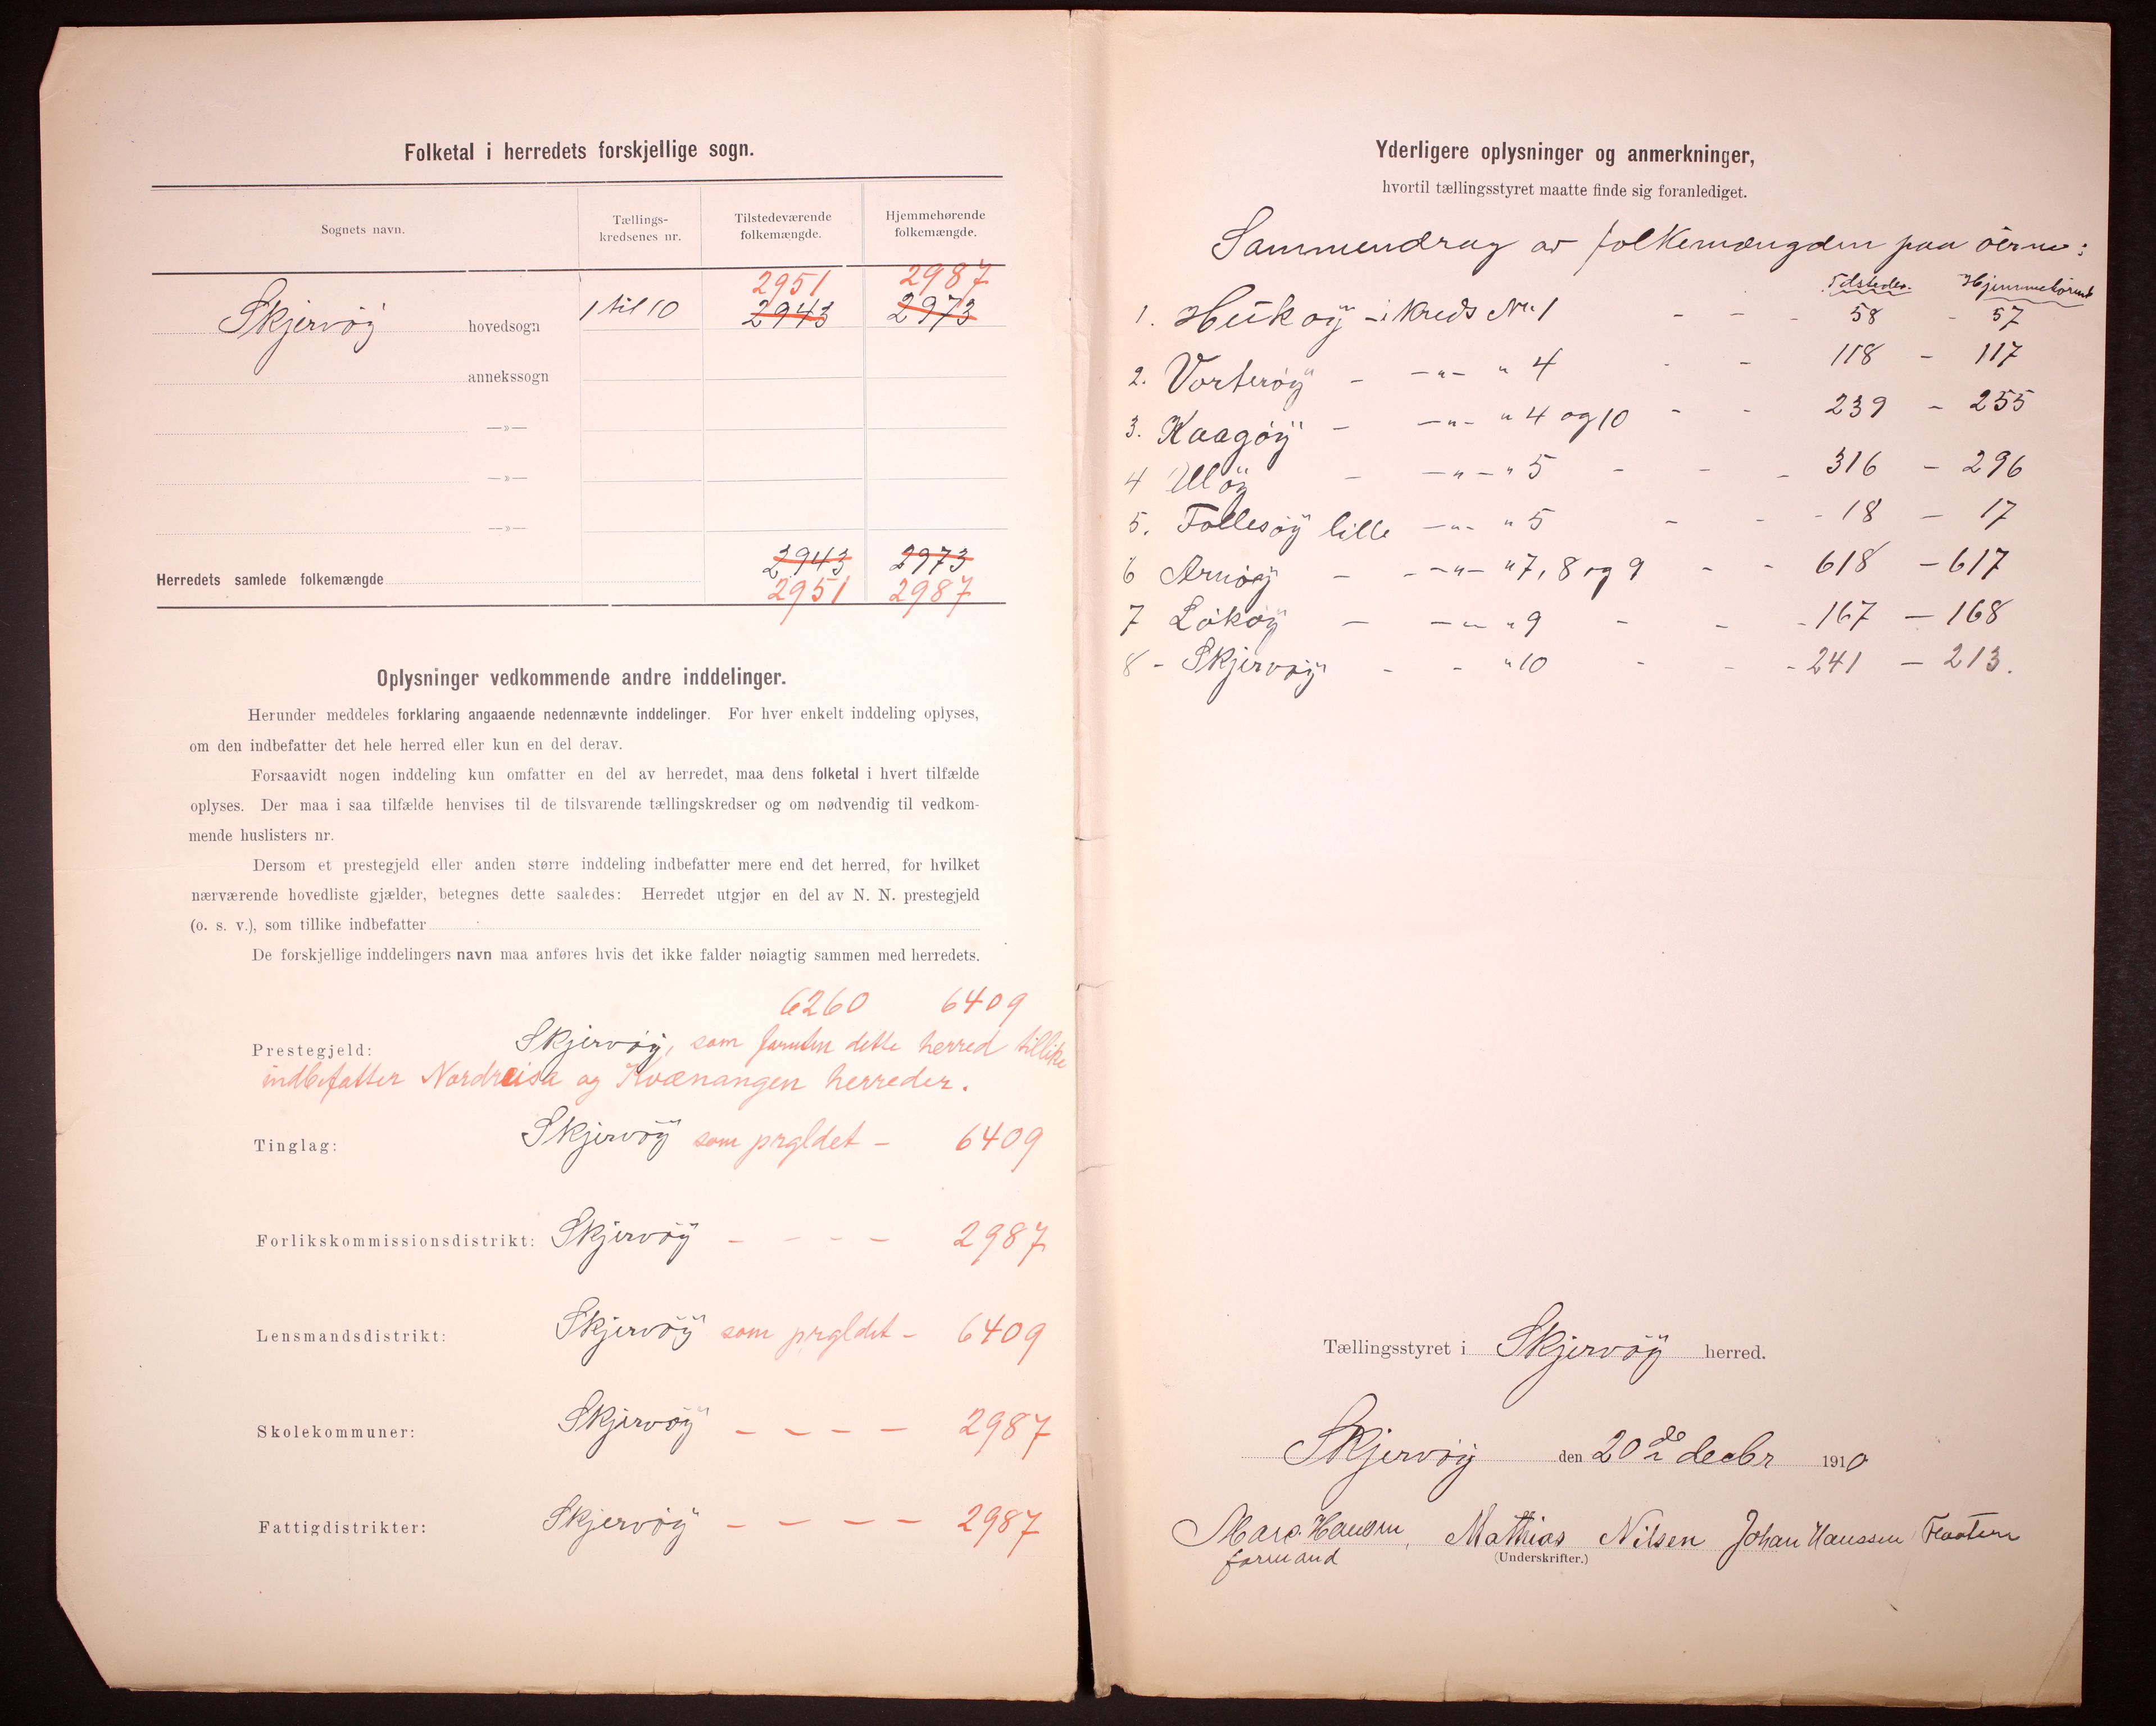 Folketal i herredets forskjellige sogn.
Sognets navn. Tællings-kredsenes nr. Tilstedeværende folkemængde. Hjemmehørende folkemængde.
2951 2987
Skjervöy hovedsogn 1 til 10 2943 2973
annekssogn
—»—
—»—
—»—
2943 2973
Herredets samlede folkemængde
2951 2987
Oplysninger vedkommende andre inddelinger.
Herunder meddeles forklaring angaaende nedennævnte inddelinger. For hver enkelt inddeling oplyses,
om den indbefatter det hele herred eller kun en del derav.
Forsaavidt nogen inddeling kun omfatter en del av herredet, maa dens folketal i hvert tilfælde
oplyses. Der maa i saa tilfælde henvises til de tilsvarende tællingskredser og om nødvendig til vedkom-
mende huslisters nr.
Dersom et prestegjeld eller anden større inddeling indbefatter mere end det herred, for hvilket
nærværende hovedliste gjælder, betegnes dette saaledes: Herredet utgjør en del av N. N. prestegjeld
(o. s. v.), som tillike indbefatter
De forskjellige inddelingers navn maa anføres hvis det ikke falder nøiagtig sammen med herredets.
6260 6409
Prestegjeld: Skjervöy, som foruten dette herred tillike
indbefatter Nordreisa og Kvænangen herreder.
Tinglag: Skjervöy som prgldet - 6409
Forlikskommissionsdistrikt: Skjervöy - - - - 2987
Lensmandsdistrikt: Skjervöy som prgldet - 6409
Skolekommuner: Skjervöy - - - - 2987
Fattigdistrikter: Skjervöy - - - - 2987
Yderligere oplysninger og anmerkninger,
hvortil tællingsstyret maatte finde sig foranlediget.
Sammendrag av folkemængden paa öerne:
Tilstedev. Hjemmehörende
1. Hukøy - i Kreds No 1 - - - 58 - 57
2. Vorteröy - -"- " 4 - - 118 - 117
3. Kaagöy - -"- " 4 og 10 - - 239 - 255
4 Ulöy - -"- " 5 - - - 316 - 296
5. Follesöy lille -"- " 5 - - - 18 - 17
6 Arnöy - -"- " 7, 8 og 9 - - 618 - 617
7 Lököy - -"- " 9 - - - 167 - 168
8 - Skjervöy - - " 10 - - - 241 - 213.
Tællingsstyret i Skjervöy herred.
Skjervöy den 20de decbr 1910
Hansen, Mathias Nilsen Johan Hanssen Flaaten
formand (Underskrifter.)